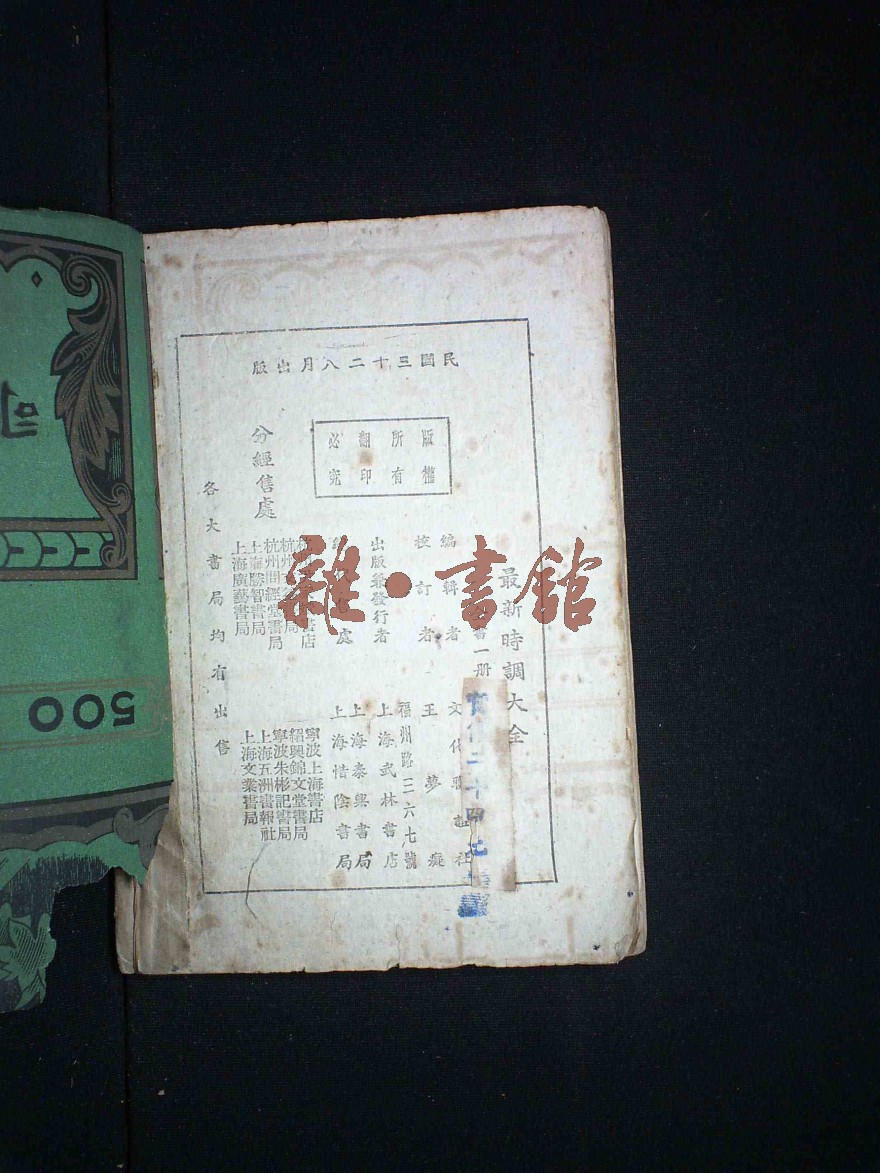 民國三十二八月出版
版權
所有
翻印
必究
最新時調大全
書一册
編輯者
校訂者 王夢癡
福州路三六七號
出版兼發行者 上海武林書店
上海泰興書局
上海惜陰書局
分經售處
寧波上海書店
紹興錦文堂書局
杭州問經堂書局 寧波朱彬記書局
上海勝智書局 上海五洲書報社
上海廣藝書局 上海文業書局
各大書局均有出售
雜·書館
500